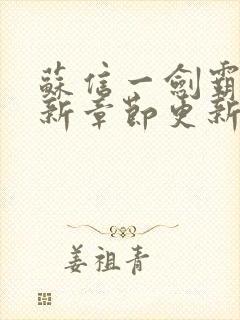 蘇信一劍霸
新章節更新
姜祖青